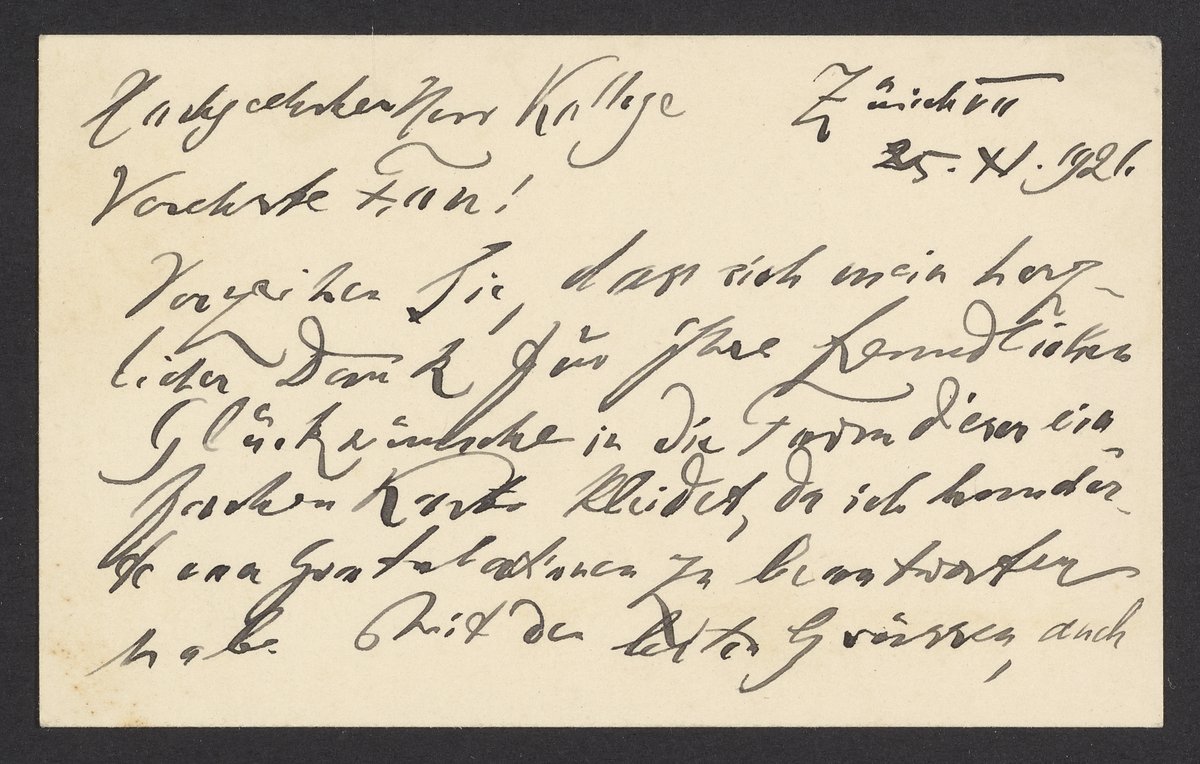 Hochgeehrter Herr Kollege Zürich VII
25. XI. 1921.
Verehrte Frau!
Verzeihen Sie, dass sich mein herz-
licher Dank für Ihre freundlichen
Glückwünsche in die Form dieser ein
fachen Karte kleidet, da ich hunder-
te von Gratulationen zu beantworten
habe. Mit den besten Grüssen, auch